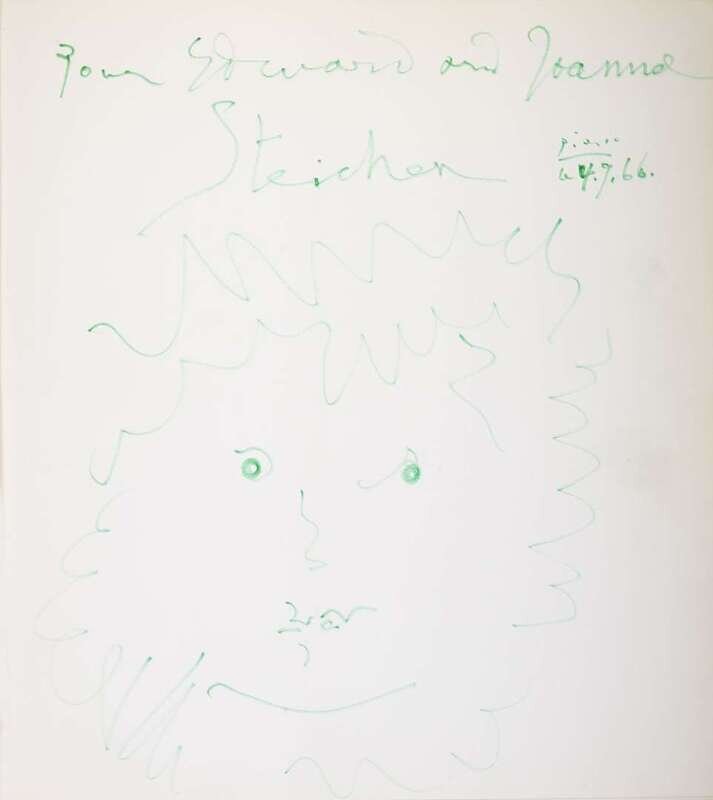 Pour Edward and Joanna
Steichen
Picasso
le 4.7.66.